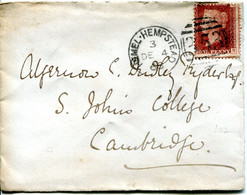 HEMEL-HEMPSTEAD
3
DE 4
ONE PENNY
Algernon C. Dudley Ryder Esq
S. Johns College
Cambridge.